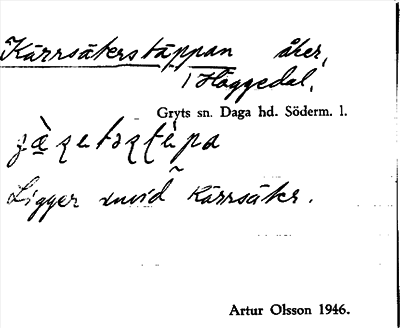 Kärrsäterstäppan åker,
i Häggedal,
Gryts sn. Daga hd. Söderm. l.
Ligger invid Kärrsäter.
Artur Olsson 1946.